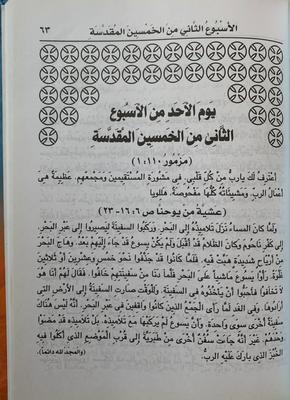 الأسبوع الثاني من الخمسين المقدسة ٦٣
يوم الأحد من الأسبوع
الثاني من الخمسين المقدسة
(مزمور ١١٠: ١)
أعترف لك يارب من كل قلبي. في مشورة المستقيمين ومجمعهم. عظيمة هي
أعمال الرب. ومشيئاته كلها مفحوصة. هلليلويا
(عشية من يوحنا ص ٦: ١٦- ٢٣)
ولما كان المساء نزل تلاميذه إلى البحر. وركبوا السفينة ليصيروا إلى عبر البحر.
إلى كفر ناحوم وكان الظلام قد أقبل ولم يكن يسوع قد جاء إليهم بعد. وهاج البحر
من أرياح شديدة هبت فيه. فلما كانوا قد جذفوا نحو خمس وعشرين أو ثلاثين
غلوة. رأوا يسوع ماشيا على البحر فلما دنا من سفينتهم خافوا. فقال لهم أنا هو
لا تخافوا فأحبوا أن يأخذوه في السفينة. وللوقت صارت السفينة إلى الأرض التي
أرادوها. وفي الغد لما رأى الجمع الذين كانوا واقفين في عبر البحر. أنه ليس هناك
سفينة أخرى سوى واحدة. وأن يسوع لم يركبها مع تلاميذه. بل تلاميذه قد مضوا
وحدهم. غير أنه جاءت سفن أخرى من طبرية إلى قرب الموضع الذي أكلوا فيه
الخبز الذي بارك عليه الرب. (والمجد لله دائما)